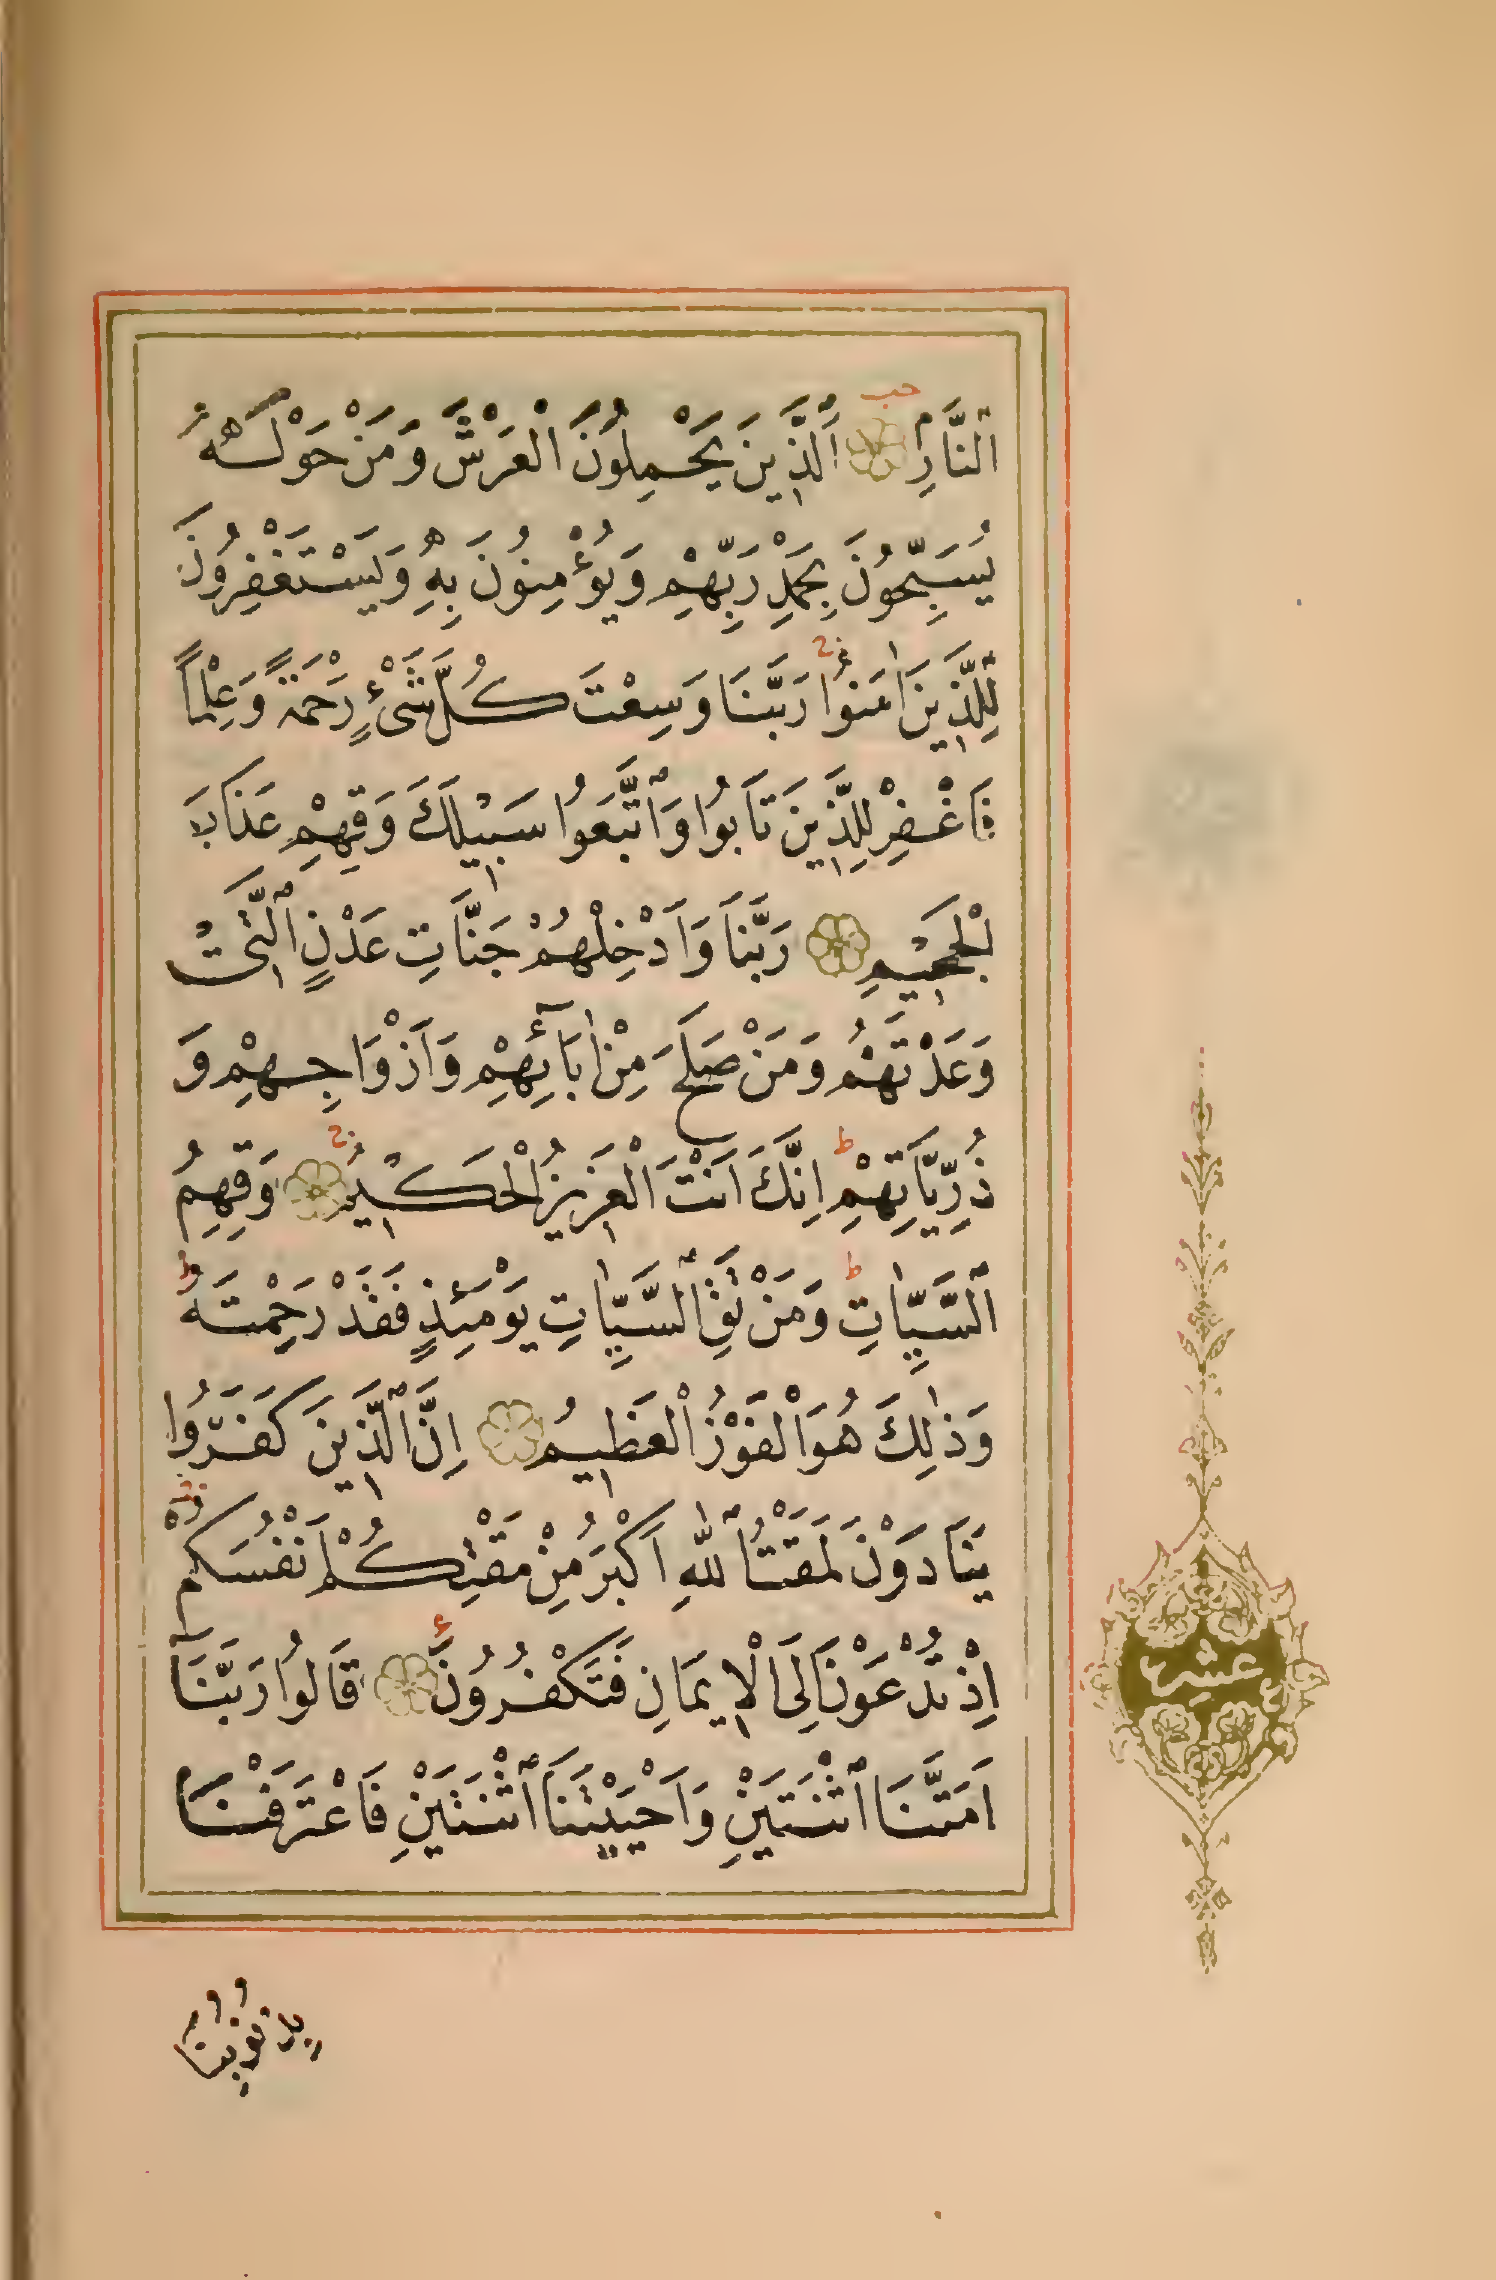 ٱلنَّارِ ۝ اَلَّذِينَ يَحْمِلُونَ الْعَرْشَ وَمَنْ حَوْلَهُ
يُسَبِّحُونَ بِحَمْدِ رَبِّهِمْ وَيُؤْمِنُونَ بِهِ وَيَسْتَغْفِرُونَ
لِلَّذِينَ اٰمَنُوا رَبَّنَا وَسِعْتَ كُلَّ شَىْءٍ رَحْمَةً وَعِلْمًا
فَاغْفِرْ لِلَّذِينَ تَابُوا وَٱتَّبَعُوا سَبِيلَكَ وَقِهِمْ عَذَابَ
الْجَحِيمِ ۝ رَبَّنَا وَاَدْخِلْهُمْ جَنَّاتِ عَدْنٍ ٱلَّتِى
وَعَدْتَهُمْ وَمَنْ صَلَحَ مِنْ اٰبَآئِهِمْ وَاَزْوَاجِهِمْ وَ
ذُرِّيَّاتِهِمْ ط اِنَّكَ اَنْتَ الْعَزِيزُ الْحَكِيمُ ۝ وَقِهِمُ
ٱلسَّيِّاٰتِ ط وَمَنْ تَقِ ٱلسَّيِّاٰتِ يَوْمَئِذٍ فَقَدْ رَحِمْتَهُ ط
وَذٰلِكَ هُوَ الْفَوْزُ الْعَظِيمُ ۝ اِنَّ ٱلَّذِينَ كَفَرُوا
يُنَادَوْنَ لَمَقْتُ ٱللّٰهِ اَكْبَرُ مِنْ مَقْتِكُمْ اَنْفُسَكُمْ
اِذْ تُدْعَوْنَ اِلَى الْاِيمَانِ فَتَكْفُرُونَ ۝ قَالُوا رَبَّنَآ
اَمَتَّنَا ٱثْنَتَيْنِ وَاَحْيَيْتَنَا ٱثْنَتَيْنِ فَاعْتَرَفْنَا
بِذُنُوبِنَا
عشر